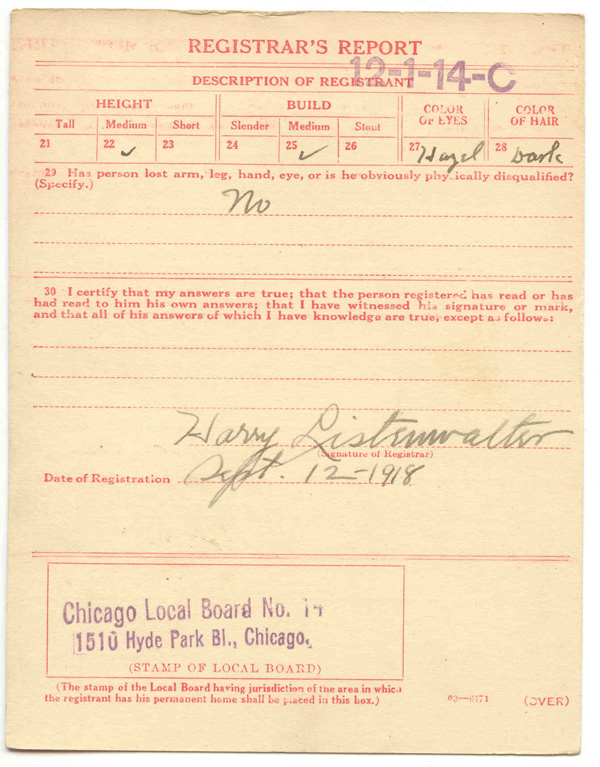 REGISTRAR'S REPORT
12-1-14-C
DESCRIPTION OF REGISTRANT
HEIGHT BUILD COLOR OF EYES COLOR OF HAIR
Tall Medium Short Slender Medium Stout
21 22 ✓ 23 24 25 ✓ 26 27 Hazel 28 Dark
29 Has person lost arm, leg, hand, eye, or is he obviously physically disqualified?
(Specify.)
No
30 I certify that my answers are true; that the person registered has read or has
had read to him his own answers; that I have witnessed his signature or mark,
and that all of his answers of which I have knowledge are true, except as follows:
Harry Listenwalter
(Signature of Registrar)
Date of Registration Sept. 12-1918
Chicago Local Board No. 14
1510 Hyde Park Bl., Chicago.
(STAMP OF LOCAL BOARD)
(The stamp of the Local Board having jurisdiction of the area in which
the registrant has his permanent home shall be placed in this box.)
03—6171 (OVER)